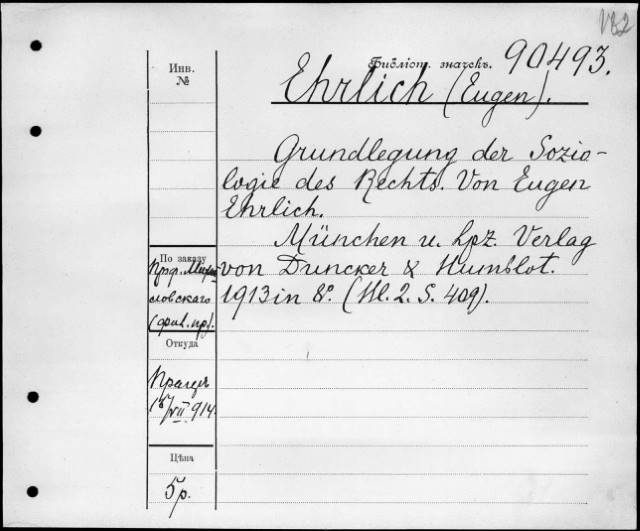 VB2
Инв.
№
Библіот. значекъ. 90493.
Ehrlich (Eugen).
Grundlegung der Sozio-
logie des Rechts. Von Eugen
Ehrlich.
München u. Lpz. Verlag
von Duncker & Humblot.
1913 in 8º. (Hl. 2. S. 409).
По заказу
Проф. Михай
ловскаго
(фил. пр).
Откуда
15/VII 914
Цѣна
5 р.